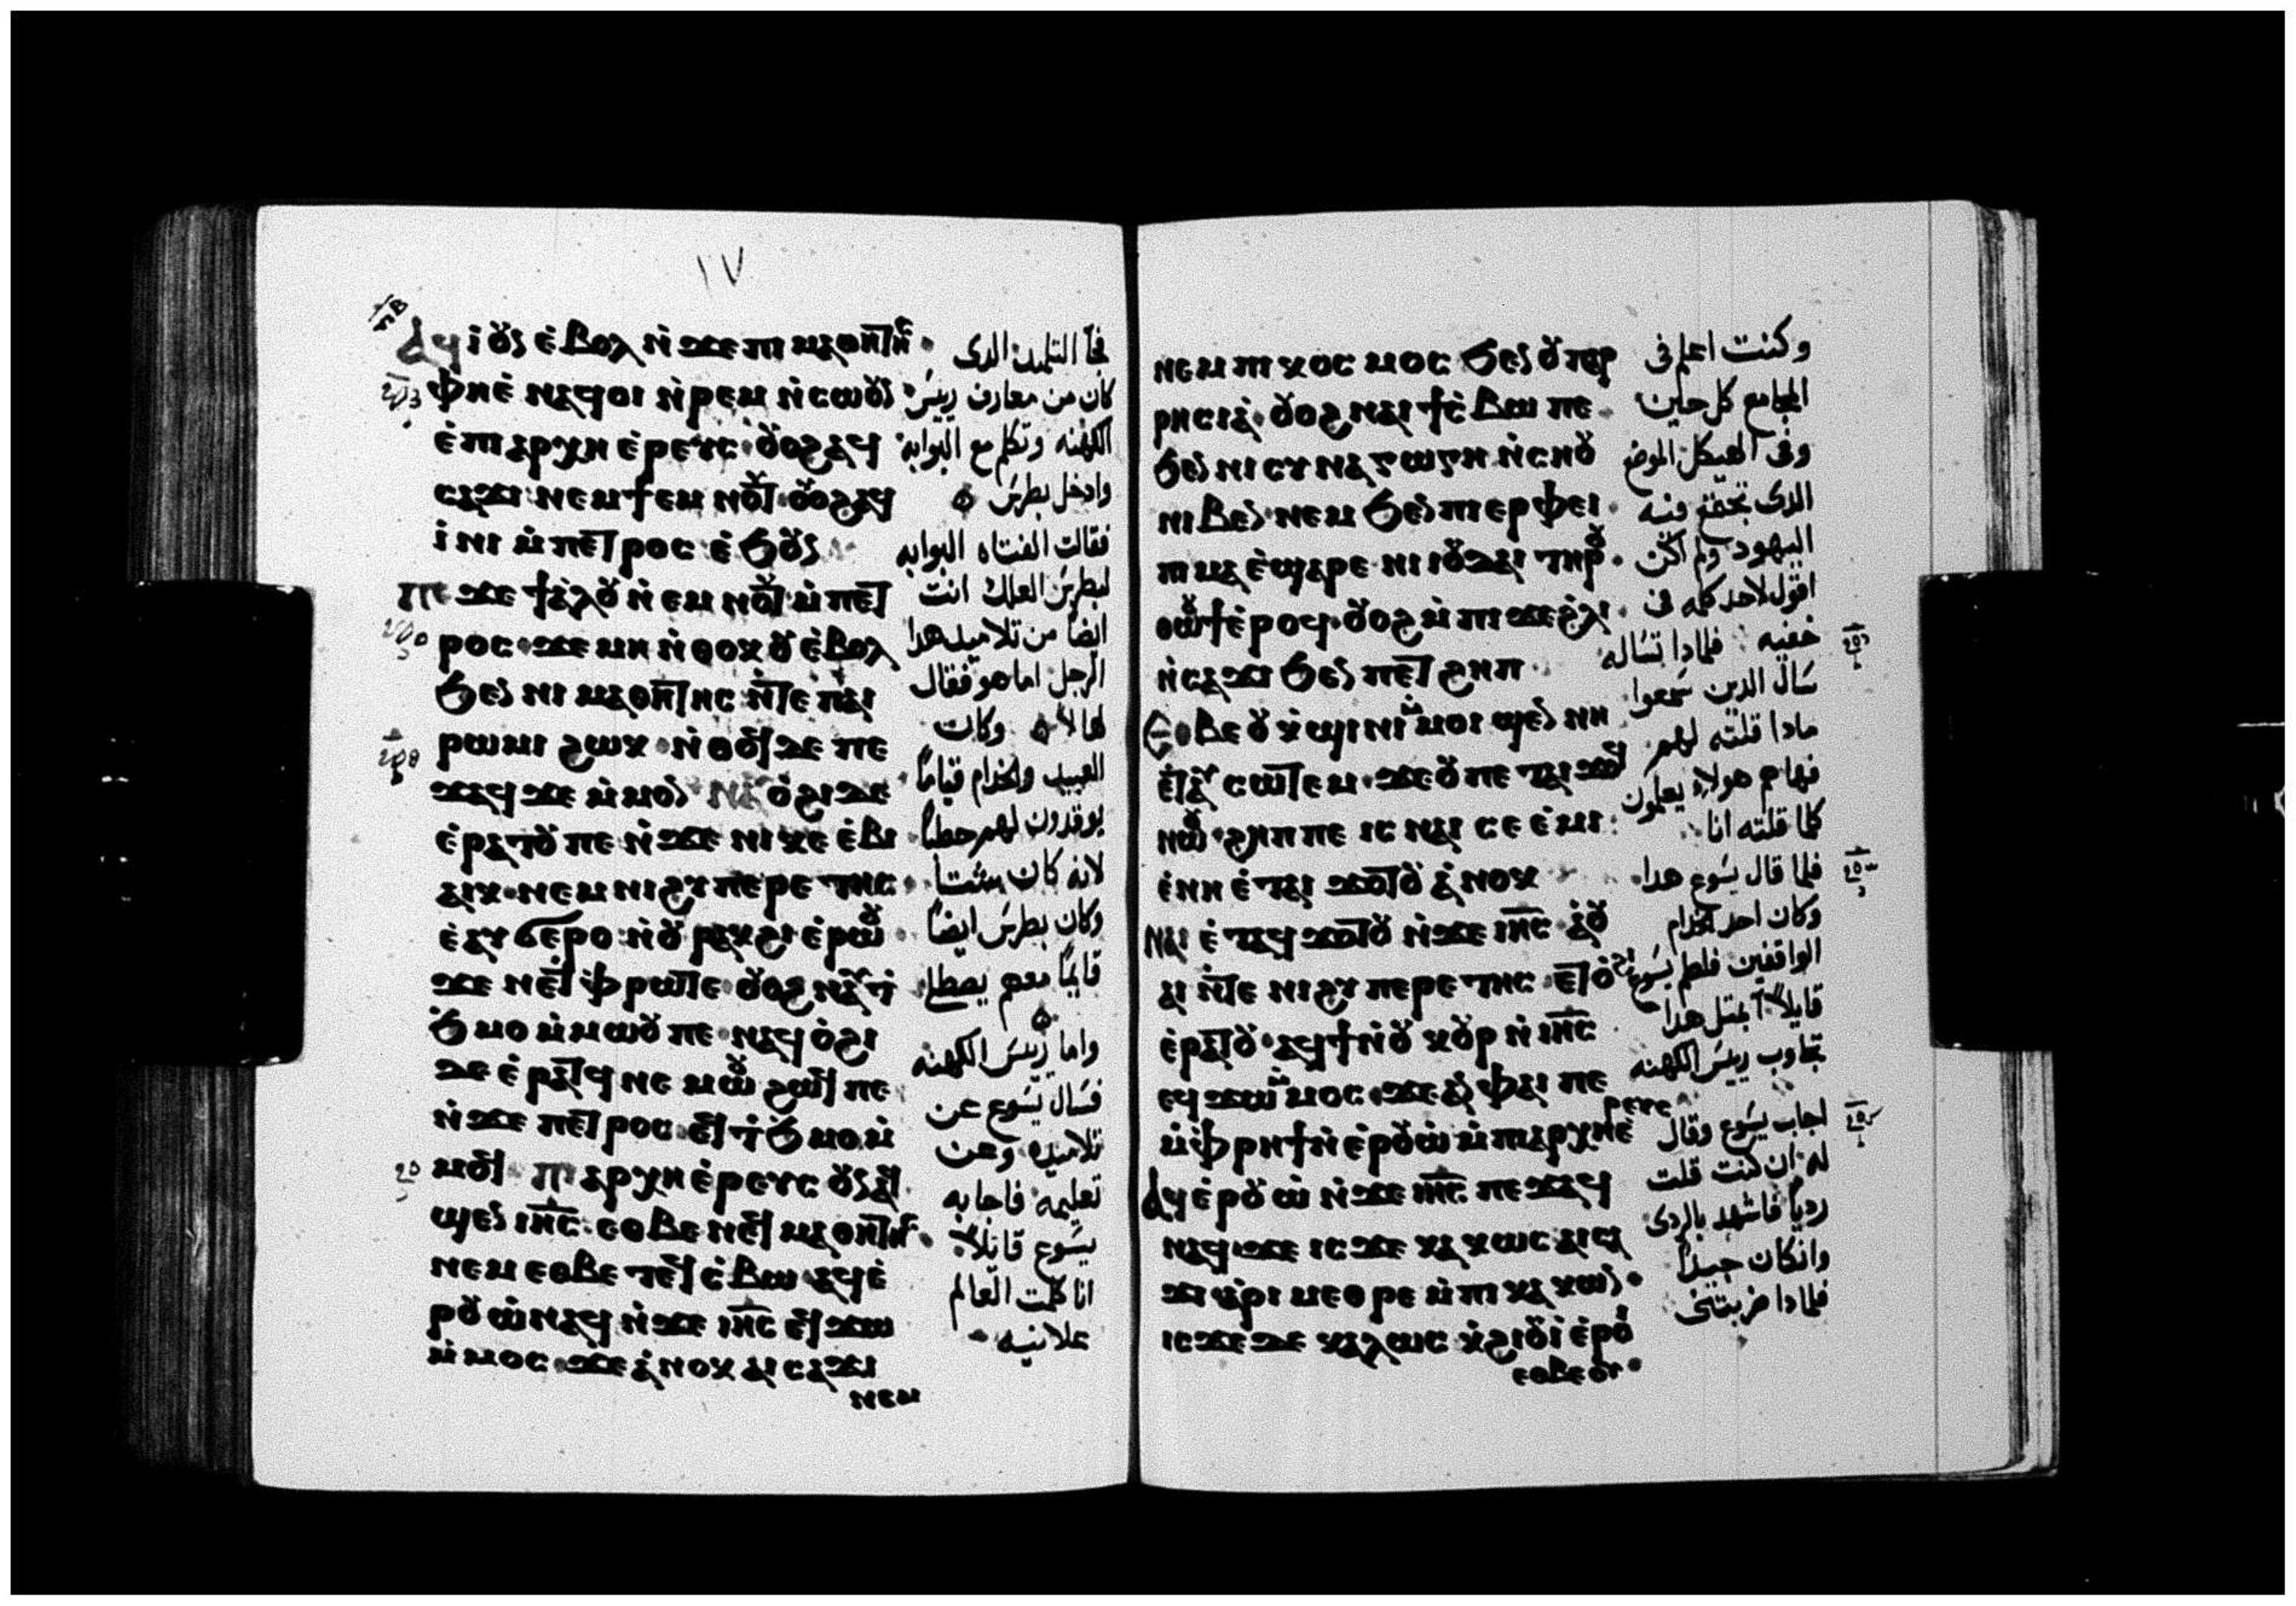 ١٧
ⲁϥⲓ̀ ⲟⲩⲛ ⲉ̀ⲃⲟⲗ ⲛ̀ϫⲉ ⲡⲓ ⲙⲁⲑⲏⲧⲏⲥ
ⲫⲏⲉ̀ ⲛⲁϥⲟⲓ ⲛ̀ⲣⲉⲙ ⲛ̀ⲥⲱⲟⲩⲛ
ⲉ̀ ⲡⲓⲁⲣⲭⲏ ⲉ̀ⲣⲉⲩⲥ ⲟⲩⲟϩ ⲁϥ
ⲥⲁϫⲓ ⲛⲉⲙ ϯ ⲉⲙ ⲛⲟⲩⲧ ⲟⲩⲟϩ ⲁϥ
ⲓ̀ⲛⲓ ⲙ̀ⲡⲉⲧⲣⲟⲥ ⲉ̀ϧⲟⲩⲛ
ⲡⲉϫⲉ ϯⲁ̀ⲗⲟⲩ ⲛ̀ ⲉⲙ ⲛⲟⲩⲧ ⲙ̀ⲡⲉⲧ
ⲣⲟⲥ ϫⲉ ⲙⲏ ⲛ̀ⲑⲟⲕ ⲟⲩ ⲉ̀ⲃⲟⲗ
ϧⲉⲛ ⲛⲓ ⲙⲁⲑⲏⲧⲏⲥ ⲛ̀ⲧⲉ ⲡⲁⲓ
ⲣⲱⲙⲓ ϩⲱⲕ ⲛ̀ⲑⲟϥ ⲇⲉ ⲡⲉ
ϫⲁϥ ϫⲉ ⲙ̀ⲙⲟⲛ ⲛⲁⲩ ⲟ̀ϩⲓ ⲇⲉ
ⲉ̀ⲣⲁⲧⲟⲩ ⲡⲉ ⲛ̀ϫⲉ ⲛⲓ ⲕⲉ ⲉ̀ⲃⲓ
ⲁⲓⲕ ⲛⲉⲙ ⲛⲓ ϩⲩⲡⲉⲣⲉⲧⲏⲥ
ⲉ̀ⲁⲩ ϭⲉⲣⲟ ⲛ̀ⲟⲩ ⲣⲁⲕϩⲓ ⲉ̀ⲣⲱⲟⲩ
ϫⲉ ⲛⲉ ⲧ ⲫⲣⲱ ⲧⲉ ⲟⲩⲟϩ ⲛⲁⲩ ⲧ̀
ϧⲙⲟ ⲙ̀ⲙⲱⲟⲩ ⲡⲉ ⲛⲁϥ ⲟ̀ϩⲓ
ⲇⲉ ⲉ̀ⲣⲁⲧϥ ⲛⲉⲙⲱⲟⲩ ϩⲱϥ ⲡⲉ
ⲛ̀ϫⲉ ⲡⲉⲧⲣⲟⲥ ⲉϥ ⲧ̀ϧⲙⲟ ⲙ̀
ⲙⲟϥ ⲡⲓⲁⲣⲭⲏ ⲉ̀ⲣⲉⲩⲥ ⲟⲩⲛ ⲁϥ
ϣⲉⲛ ⲓⲏⲥ ⲉⲑⲃⲉ ⲛⲉϥ ⲙⲁⲑⲏⲧⲏⲥ
ⲛⲉⲙ ⲉⲑⲃⲉ ⲧⲉϥ ⲥ̀ⲃⲱ ⲁϥ ⲉ̀
ⲣⲟⲩⲱ̀ ⲛⲁϥ ⲛ̀ϫⲉ ⲓⲏⲥ ⲉϥ ϫⲱ
ⲙ̀ⲙⲟⲥ ϫⲉ ⲁ̀ⲛⲟⲕ ⲁⲓ ⲥⲁϫⲓ
ⲛⲉⲙ
فجآ التلميذ الدى
كان من معارف رييس
الكهنه وتكلم مع البوابه
وادخل بطرس
فقالت الفتاه البوابه
لبطرس العلك انت
ايضاً من تلاميد هدا
الرجل اما هو فقال
لها لا وكان
العبيد والخدام قياماً
يوقدون لهم حطباً
لانه كان شتا
وكان بطرس ايضاً
قايماً معهم يصطلى
واما رييس الكهنه
فسال يسوع عن
تلاميده وعن
تعليمه فاجابه
يسوع قايلاً
انا كلمت العالم
علانيه
ⲛⲉⲙ ⲡⲓⲕⲟⲥⲙⲟⲥ ϧⲉⲛ ⲟⲩ ⲡⲁⲣ
ⲣⲏⲥⲓⲁ̀ ⲟⲩⲟϩ ⲛⲁⲓ ϯⲥ̀ⲃⲱ ⲡⲉ
ϧⲉⲛ ⲛⲓ ⲥⲩⲛⲁⲅⲱⲅⲏ ⲛ̀ⲥⲏⲟⲩ
ⲛⲓⲃⲉⲛ ⲛⲉⲙ ϧⲉⲛ ⲡⲓⲉⲣⲫⲉⲓ
ⲡⲓ ⲙⲁ ⲉ̀ϣⲁⲣⲉ ⲛⲓ ⲓⲟⲩⲇⲁⲓ ⲧⲏⲣⲟⲩ
ⲑⲱⲟⲩϯ ⲉ̀ⲣⲟϥ ⲟⲩⲟϩ ⲙ̀ⲡⲓ ϫⲉ ϩ̀ⲗⲓ
ⲛ̀ⲥⲁϫⲓ ϧⲉⲛ ⲡⲉⲧ ϩⲏⲡ
ⲉⲑⲃⲉ ⲟⲩ ⲕ̀ϣⲓⲛⲓ ⲙ̀ⲙⲟⲓ ϣⲉⲛ ⲛⲏ
ⲉ̀ⲧⲁⲩ ⲥⲱⲧⲉⲙ ϫⲉ ⲟⲩ ⲡⲉⲧⲁⲓ ϫⲟϥ
ⲛⲱⲟⲩ ϩⲏⲡⲡⲉ ⲓⲥ ⲛⲁⲓ ⲥⲉ ⲉ̀ⲙⲓ
ⲉ̀ⲛⲏ ⲉ̀ⲧⲁⲓ ϫⲟⲧⲟⲩ ⲁ̀ⲛⲟⲕ
ⲛⲁⲓ ⲉ̀ⲧⲁϥ ϫⲟⲧⲟⲩ ⲛ̀ϫⲉ ⲓⲏⲥ ⲁ̀ⲟⲩ
ⲁⲓ ⲛ̀ⲧⲉ ⲛⲓ ϩⲩⲡⲉⲣⲉⲧⲏⲥ ⲉⲧ ⲟ̀ϩⲓ
ⲉ̀ⲣⲁⲧⲟⲩ ⲁϥϯ ⲛ̀ⲟⲩ ⲕⲟⲩⲣ ⲛ̀ ⲓⲏⲥ
ⲉϥ ϫⲱ ⲙ̀ⲙⲟⲥ ϫⲉ ⲁⲛ ⲫⲁⲓ ⲡⲉ
ⲙ̀ⲫⲣⲏϯ ⲛ̀ ⲉ̀ⲣⲟⲩⲱ̀ ⲙ̀ⲡⲓⲁⲣⲭⲏⲉ̀ⲣⲉⲩⲥ
ⲁϥ ⲉ̀ⲣⲟⲩⲱ̀ ⲛ̀ϫⲉ ⲓⲏⲥ ⲡⲉϫⲁϥ
ⲛⲁϥ ϫⲉ ⲓⲥϫⲉ ⲕⲁⲕⲱⲥ ⲁⲓⲥⲁ
ϫⲓ ⲁ̀ⲣⲓ ⲙⲉⲑⲣⲉ ⲙ̀ⲡⲓ ⲕⲁⲕⲱⲛ
ⲓⲥϫⲉ ⲇⲉ ⲕⲁⲗⲱⲥ ⲕ̀ϩⲓⲟⲩⲓ̀ ⲉ̀ⲣⲟⲓ
ⲉⲑⲃⲉ ⲟⲩ
وكنت اعلم فى
المجامع كل حين
وفى الهيكل الموضع
الدى تجتمع فيه
اليهود ولم اكن
اقول لاحد كلمه فى
خفيه فلمادا تساله
سال الدين سمعوا
مادا قلته لهم
فهاهم هولاء يعلمون
كلما قلته انا
فلما قال يسوع هدا
وكان احد الخدام
الواقفين فلطم يسوع
قايلاً ابمثل هدا
تجاوب رييس الكهنه
اجاب يسوع وقال
له ان كنت قلت
ردياً فاشهد بالردى
وانكان جيداً
فلمادا ضربتنى